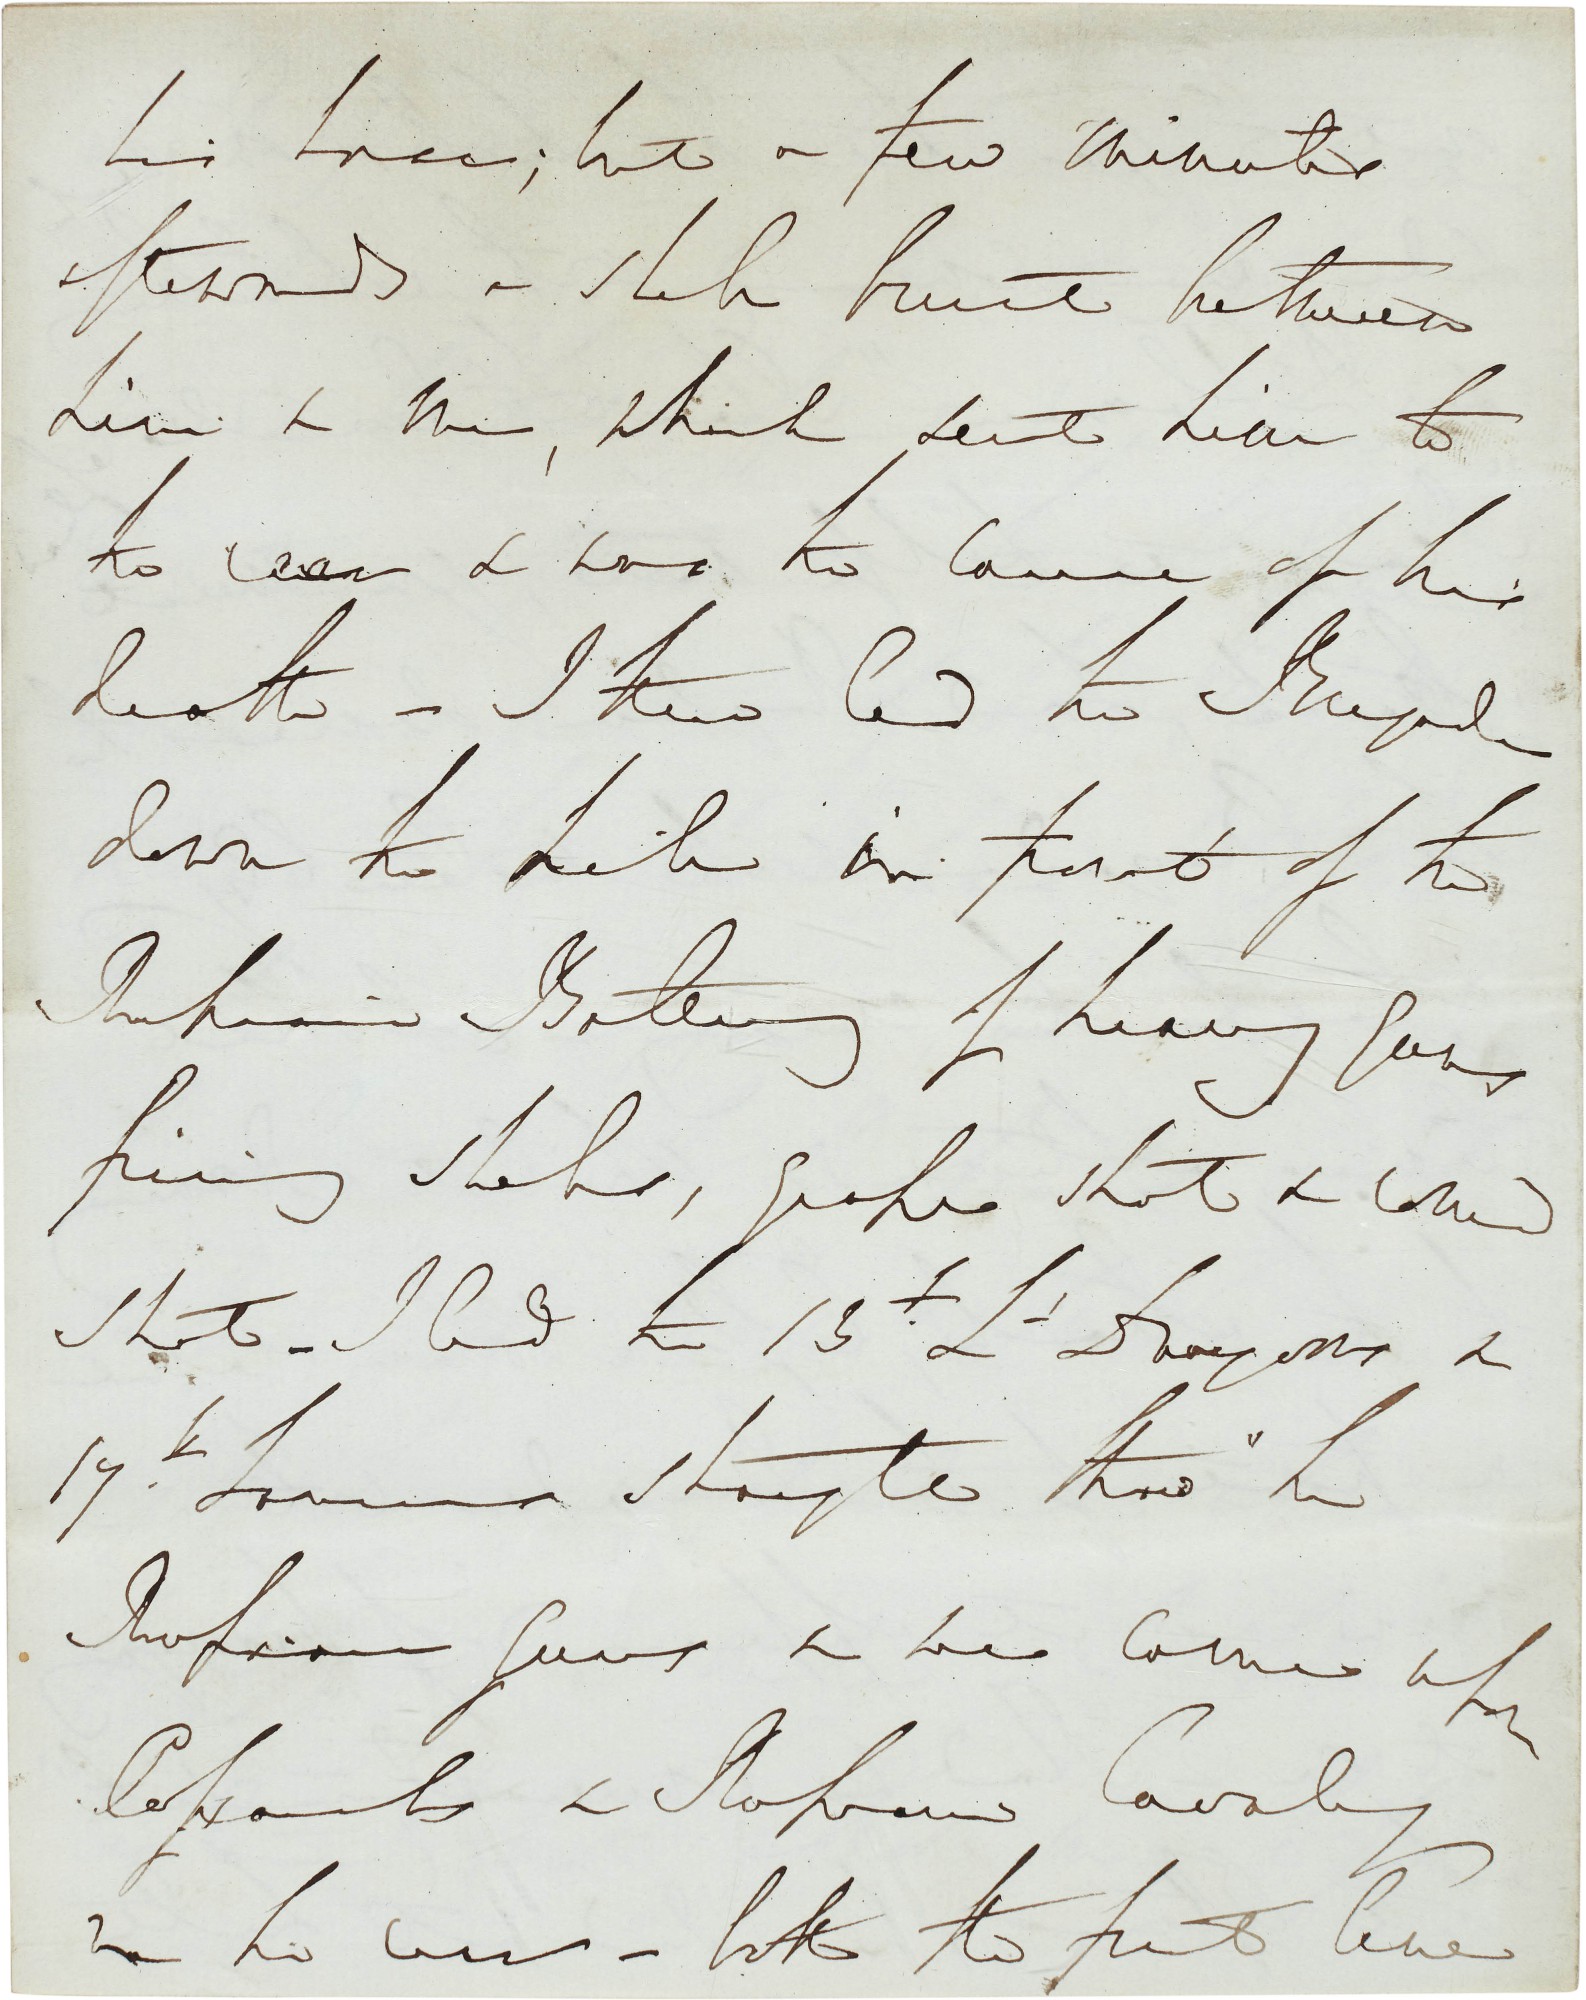 his horse; but a few minutes
afterwards a shell burst between
him & me, which sent him to
the rear & was the cause of his
death – I then led the Brigade
down the hill in front of the
Russian Battery of heavy guns
firing shells, grape shot & round
shot – I led the 13th Lt Dragoons &
17th Lancers straight thro' the
Russian guns & we came upon
Cossacks & Russian Cavalry
in the rear – both the first line